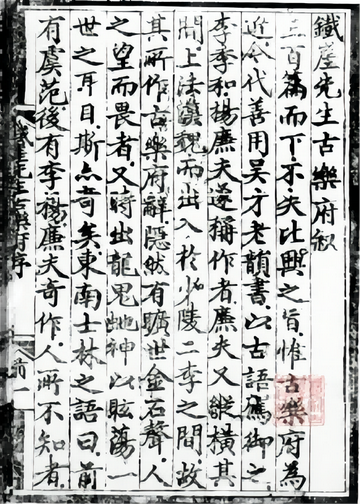 鐵崖先生古樂府叙
三百篇而下不失比興之旨惟古樂府為
近今代善用吴才老韻書以古語駕御之
李季和楊廉夫遂稱作者廉夫又縱橫其
間上法漢魏而出入於少陵二李之間故
其所作古樂府辭隱然有曠世金石聲人
之望而畏者又時出龍鬼虵神以眩蕩一
世之耳目斯亦奇矣東南士林之語曰前
有虞范後有李楊廉夫奇作人所不知者
鐵崖先生古樂府序